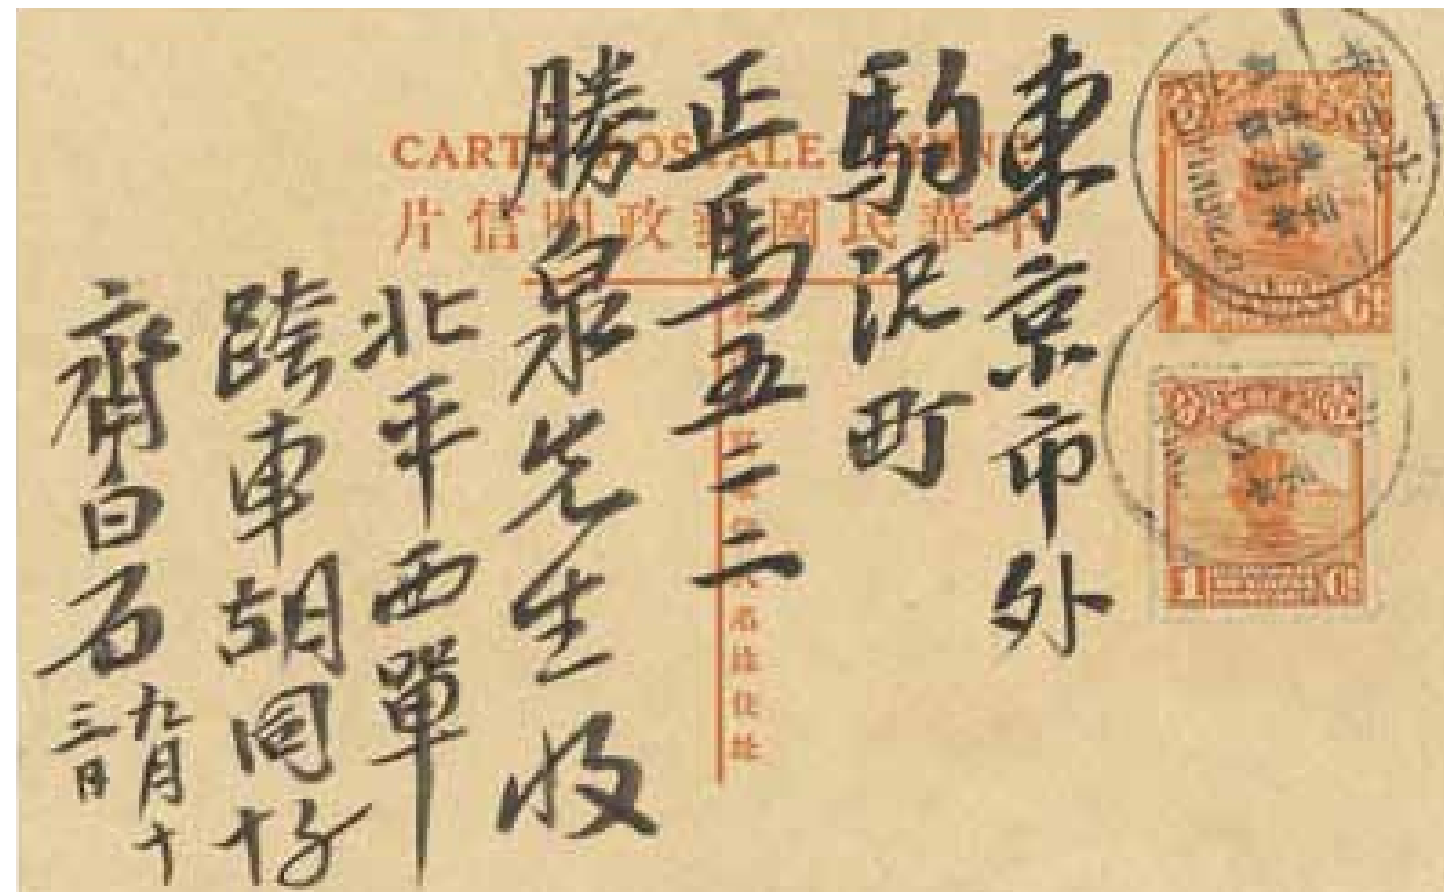 CARTE POSTALE CHINE
中華民國郵政明信片
東京市外
駒沢町
正馬五二二
勝泉先生收
北平西單
跨車胡同十
齊白石
九月十
三日
1 Ct
1 Ct